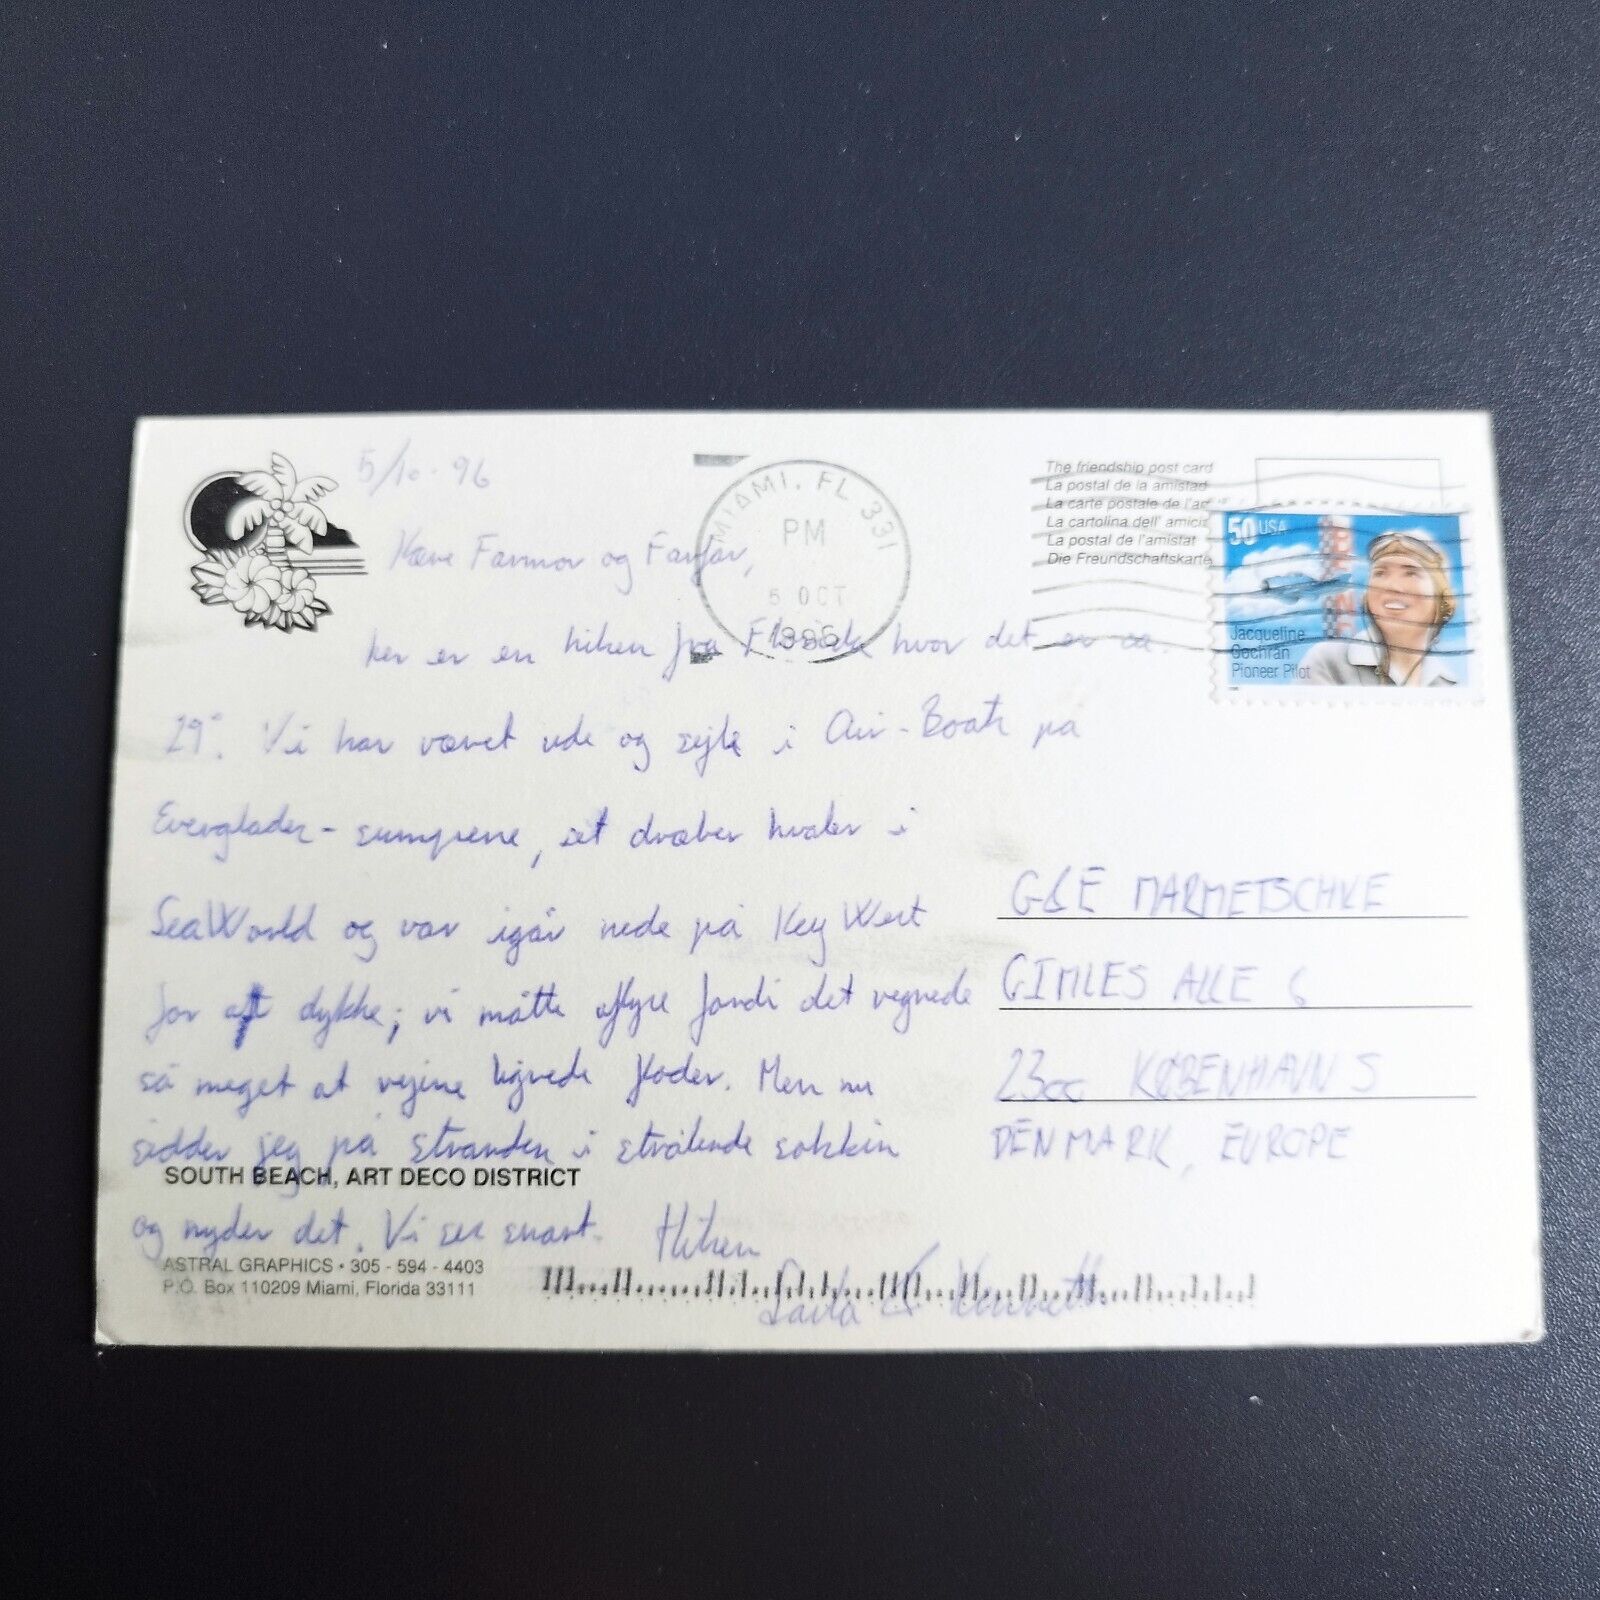 5/10-96
Kære Farmor og Farfar,
her er en hilsen fra Florida hvor det er ca.
29°. Vi har været ude og sejle i Air-Boats på
Everglades-sumpene, set dræber hvaler i
SeaWorld og var igår nede på Key West
for at dykke; vi måtte aflyse fordi det regnede
så meget at vejene lignede floder. Men nu
sidder jeg på stranden i strålende solskin
og nyder det. Vi ses snart. Hilsen
SOUTH BEACH, ART DECO DISTRICT
ASTRAL GRAPHICS • 305 - 594 - 4403
P.O. Box 110209 Miami, Florida 33111
MIAMI, FL 331
PM
5 OCT
1996
The friendship post card
La postal de la amistad
La carte postale de l'
La cartolina dell'
La postal de l'amistat
Die Freundschaftskarte
50 USA
Jacqueline
Cochran
Pioneer Pilot
G&E MARMETSCHKE
GIMLES ALLE 6
2300 KØBENHAVN S
DENMARK, EUROPE